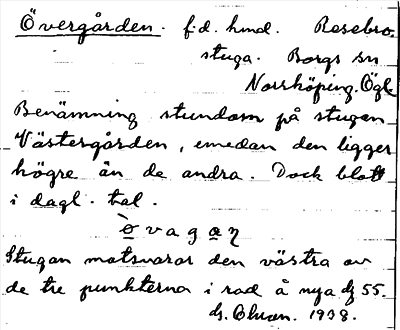 Övergården. f.d. hmd. Rosebro.
stuga. Borgs sn
Norrköping. Ögl
Benämning stundom på stugan
Västergården, emedan den ligger
högre än de andra. Dock blott
i dagl. tal.
Stugan motsvarar den västra av
de tre punkterna i rad å nya 55.
1938.